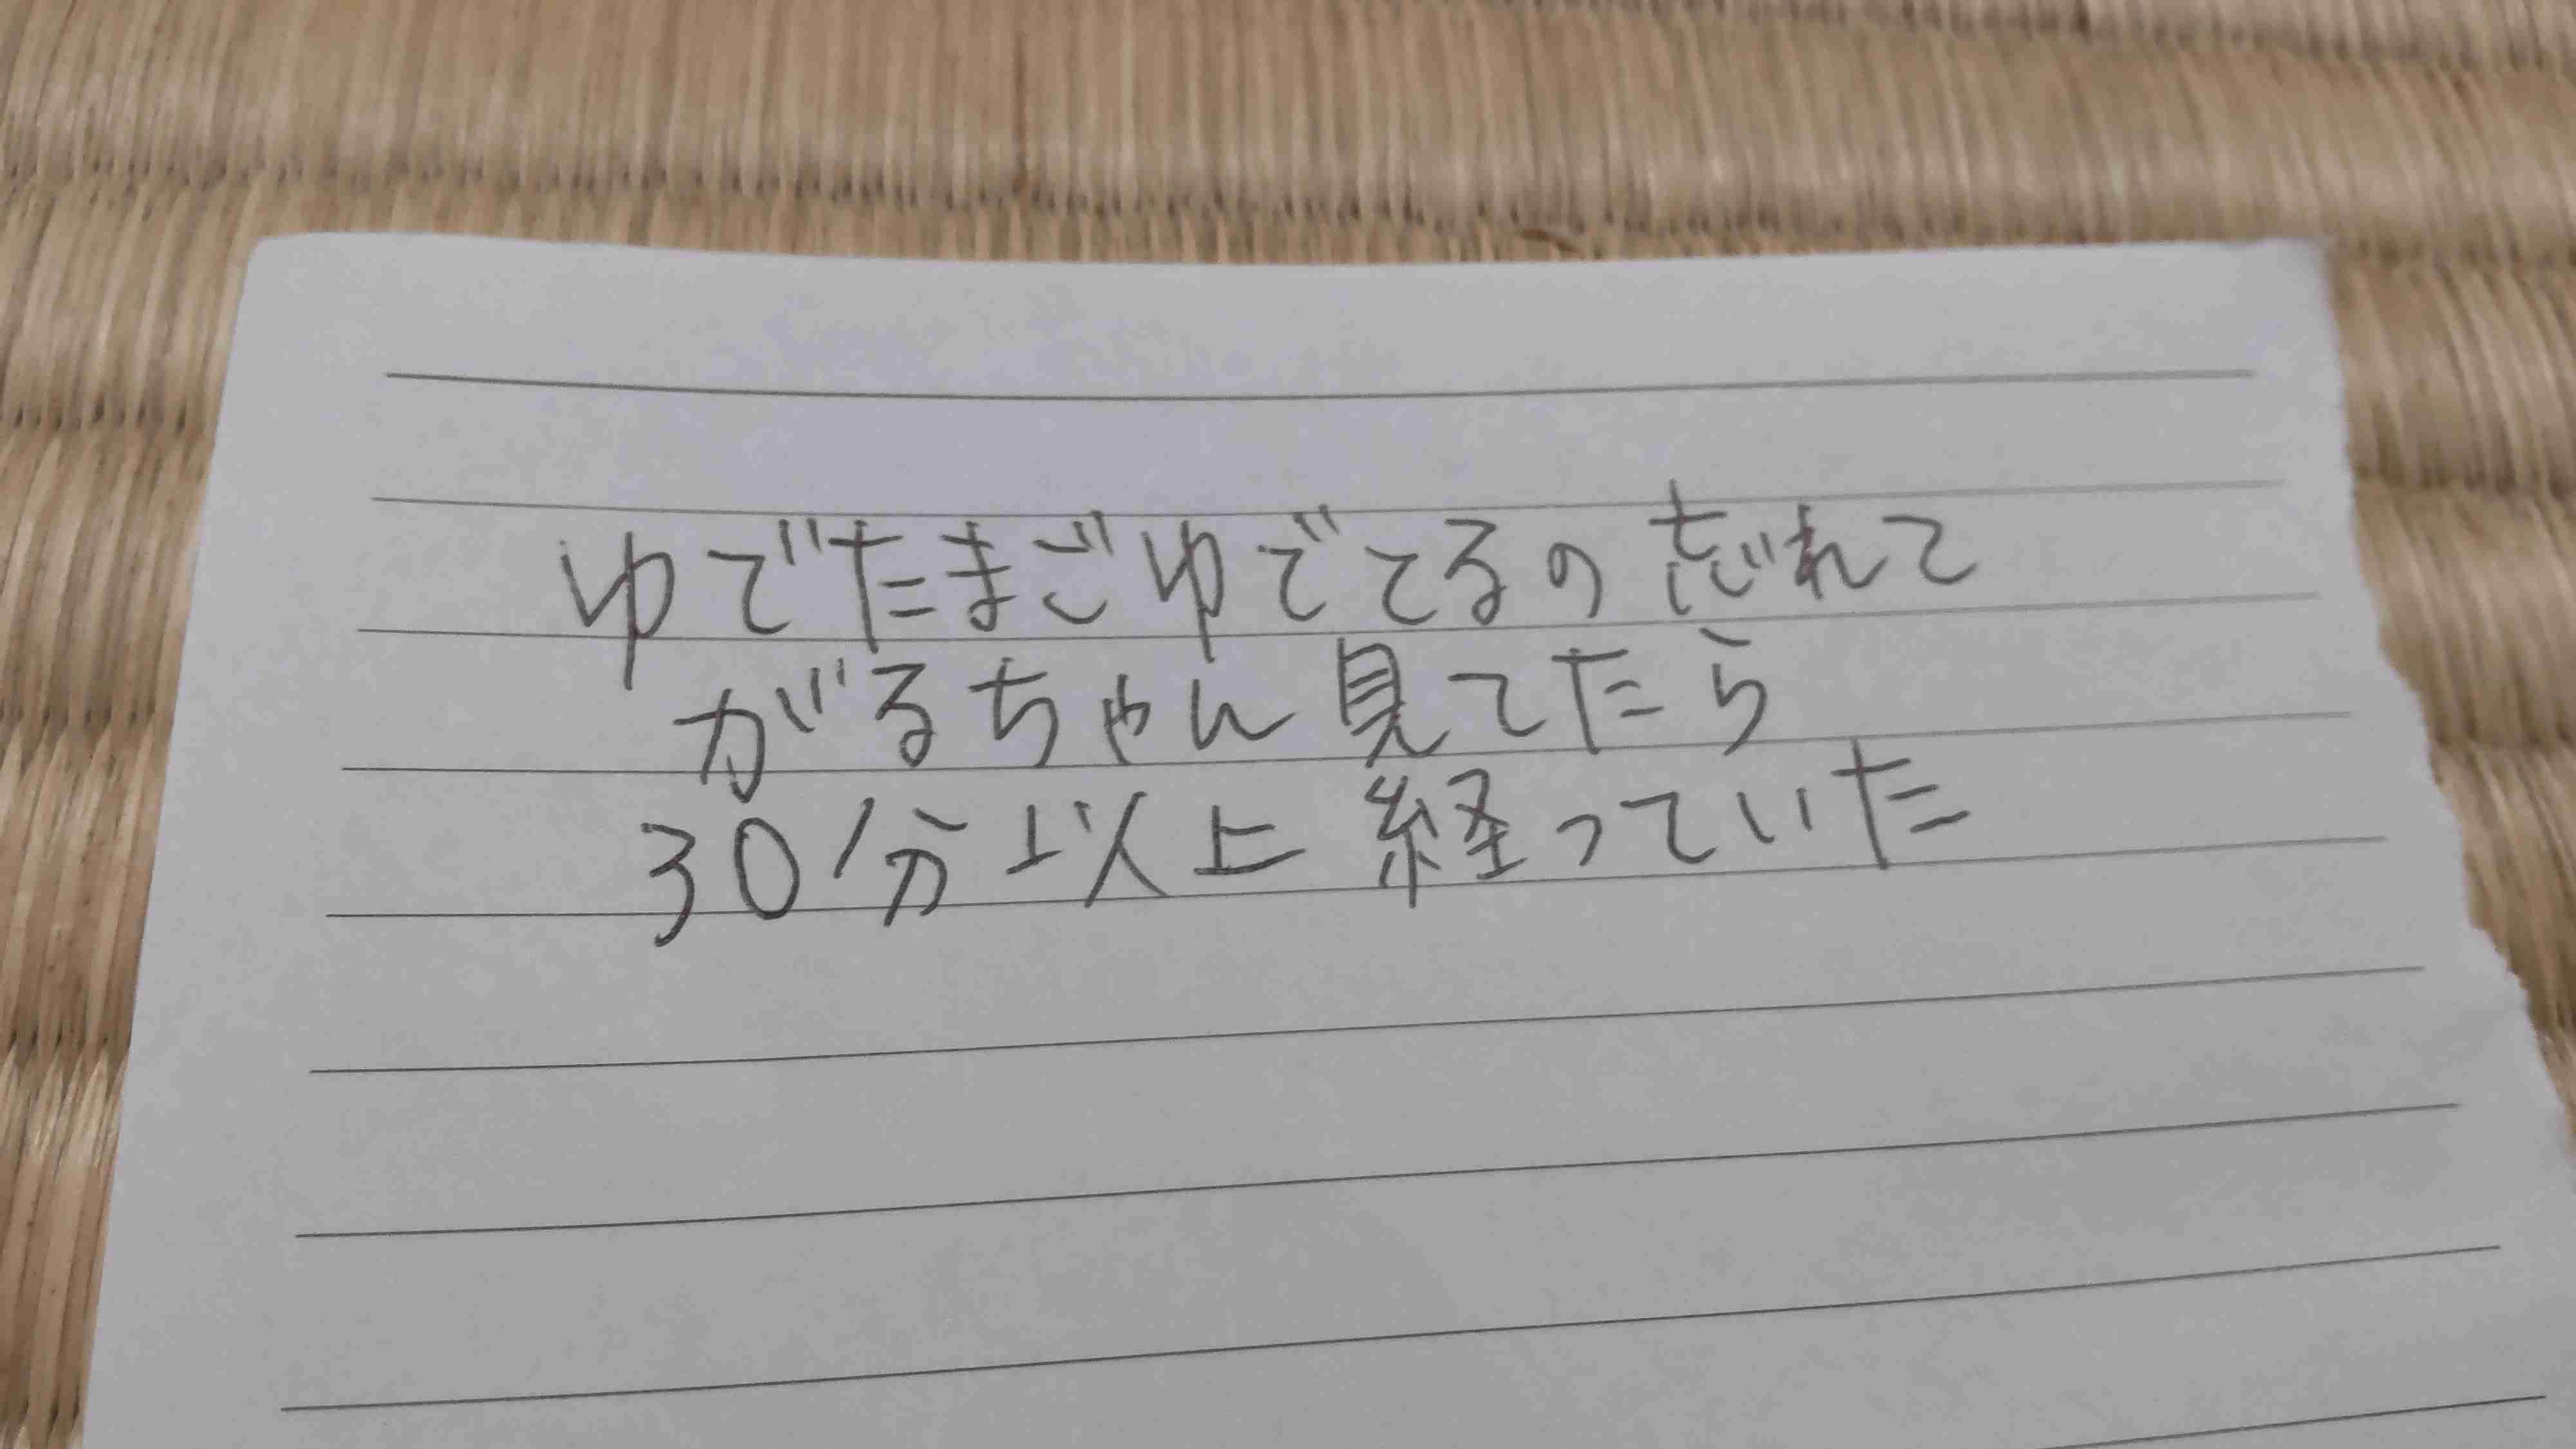 ゆでたまごゆでてるの忘れて
がるちゃん見てたら
30分以上経っていた